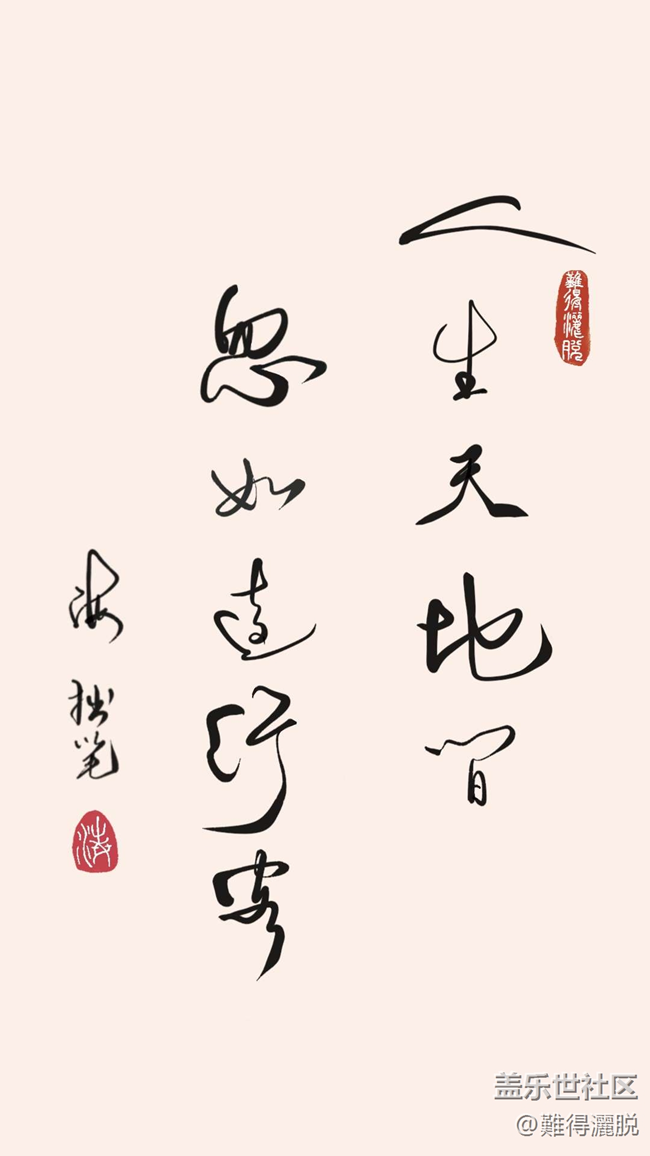 人生天地间
難得灑脱
忽如远行客
海 拙笔
海
盖乐世社区
@難得灑脱